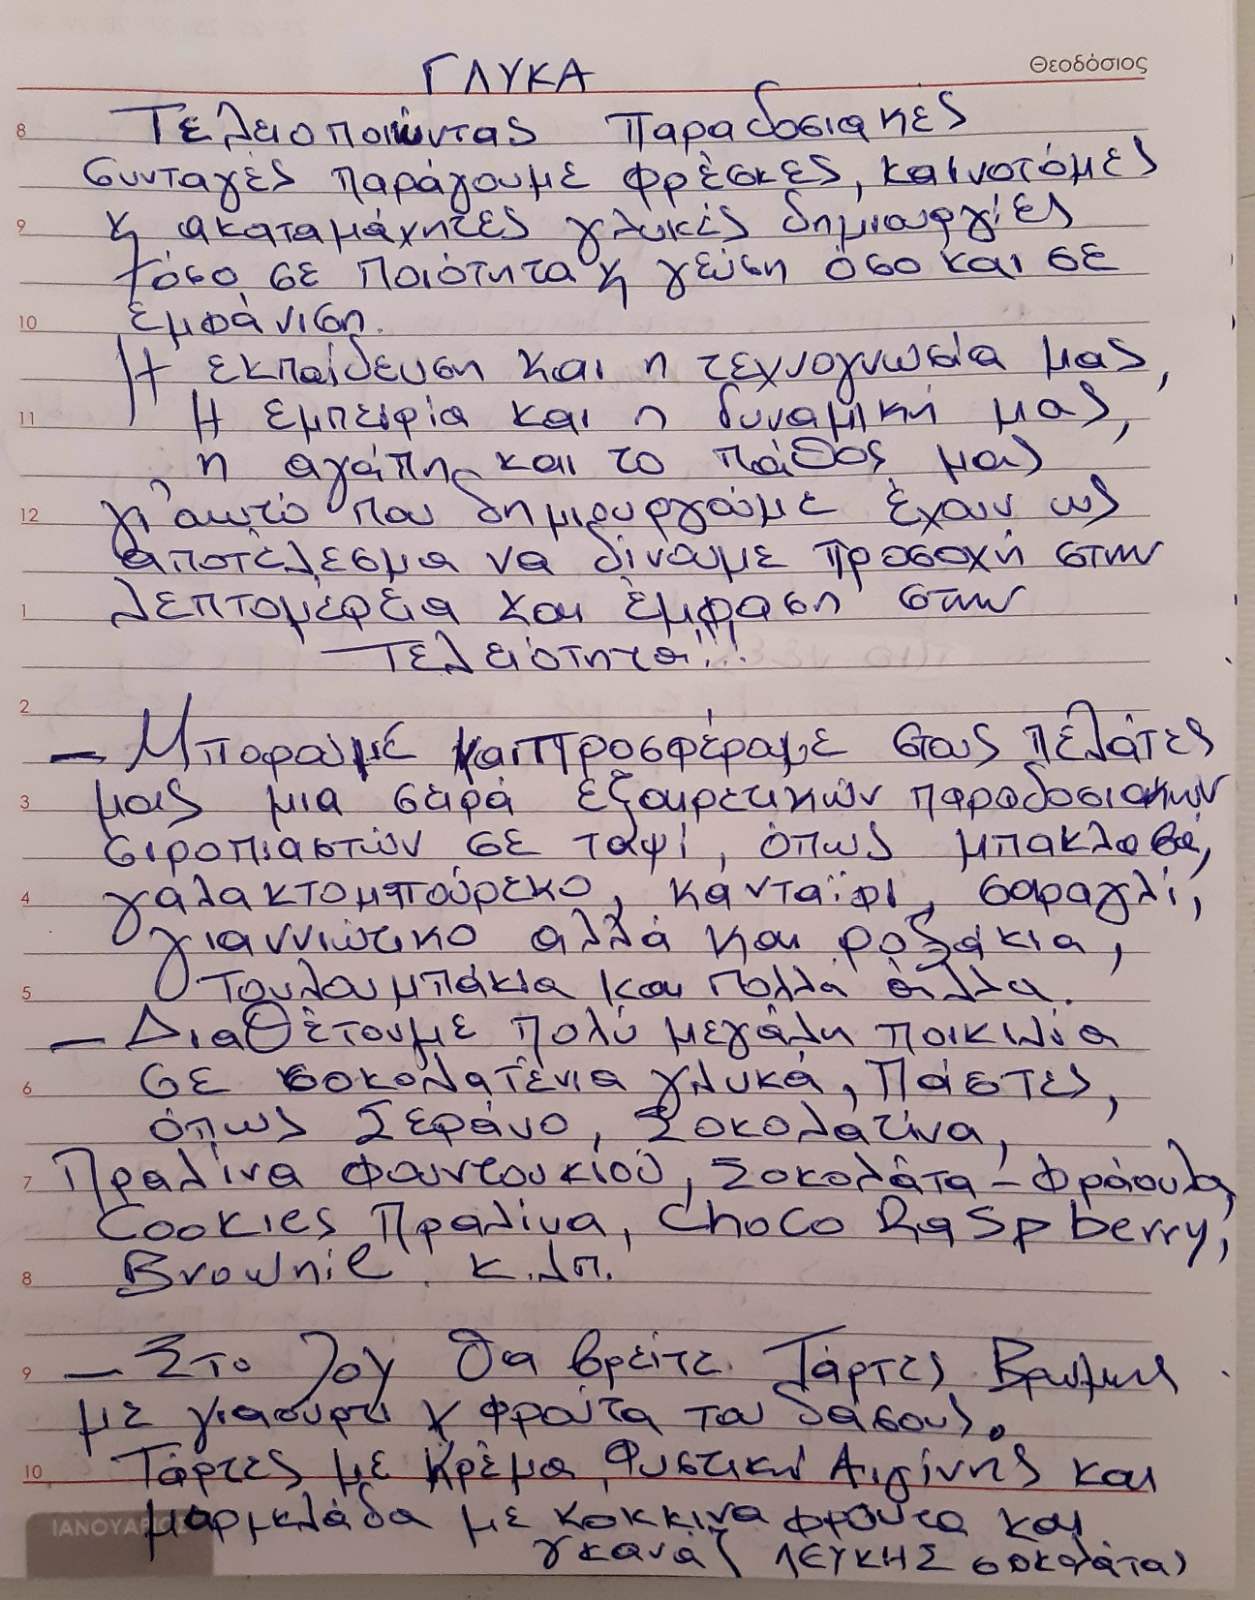 Θεοδόσιος
ΓΛΥΚΑ
8 Τελειοποιώντας παραδοσιακές
συνταγές παράγουμε φρέσκες, καινοτόμες
9 ϗ ακαταμάχητες γλυκές δημιουργίες
τόσο σε ποιότητα ϗ γεύση όσο και σε
10 εμφάνιση.
Η εκπαίδευση και η τεχνογνωσία μας,
11 Η εμπειρία και η δυναμική μας,
η αγάπη και το πάθος μας
12 γι' αυτό που δημιουργούμε έχουν ως
αποτέλεσμα να δίνουμε προσοχή στην
1 λεπτομέρεια και έμφαση στην
τελειότητα!!!
2
– Μπορούμε να προσφέρουμε στους πελάτες
3 μας μια σειρά εξαιρετικών παραδοσιακών
σιροπιαστών σε ταψί, όπως μπακλαβά,
4 γαλακτομπούρεκο, κανταΐφι, σαραγλί,
γιαννιώτικο αλλά και ροξάκια,
5 τουλουμπάκια και πολλά άλλα.
– Διαθέτουμε πολύ μεγάλη ποικιλία
6 σε σοκολατένια γλυκά, Πάστες,
όπως Σεράνο, Σοκολατίνα,
7 Πραλίνα φουντουκιού, Σοκολάτα – Φράουλα,
Cookies Πραλίνα, Choco Raspberry,
8 Brownie κ.λπ.
9 – Στο Joy θα βρείτε Τάρτες Βρώμης
με γιαούρτι ϗ φρούτα του δάσους.
10 Τάρτες με κρέμα Φυστίκι Αιγίνης και
ΙΑΝΟΥΑΡΙΟΣ μαρμελάδα με κόκκινα φρούτα και
γκανάζ ΛΕΥΚΗΣ σοκολάτας